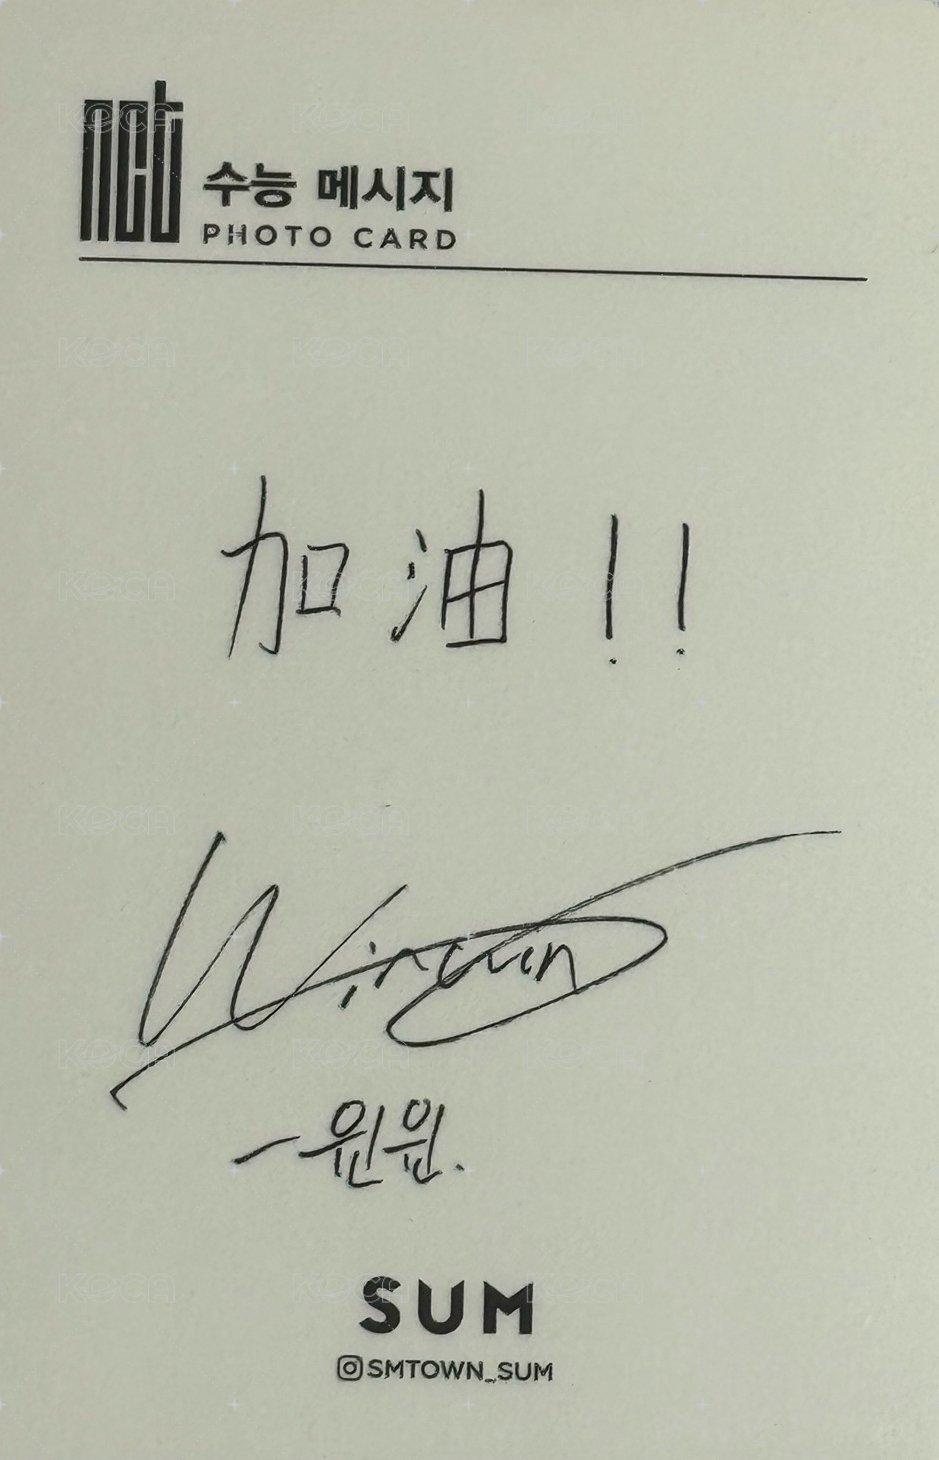 nct 수능 메시지
PHOTO CARD
加油!!
Winwin
-윈윈.
SUM
SMTOWN_SUM
KOCA